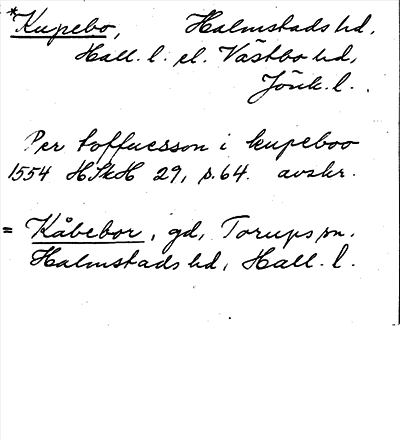 *Kupebo, Halmstads hd,
Hall. l. el. Västbo hd,
Jönk. l.
Per toffuesson i kupeboo
1554 HSkH 29, s. 64. avskr.
= Kåbebor, gd, Torups sn.
Halmstads hd, Hall. l.